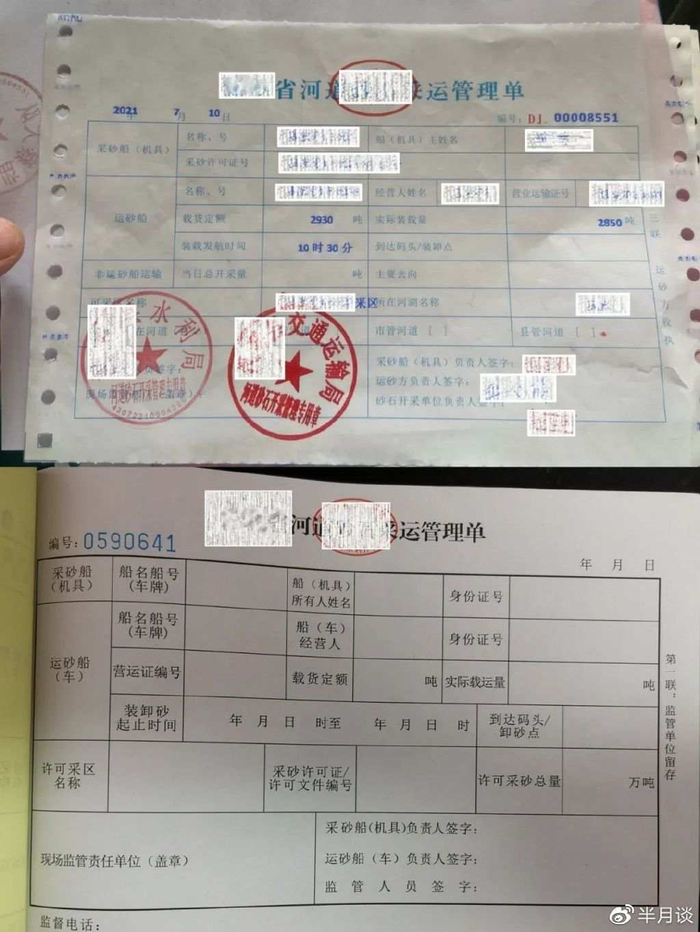 省河道 采运管理单
2021年 7月 10日 编号: DJ 00008551
采砂船（机具） 名称、号 船（机具）主姓名
采砂许可证号
运砂船 名称、号 经营人姓名 营业运输证号
载货定额 2930 吨 实际装载量 2850 吨
装载发航时间 10时30分 到达码头/装卸点
非运砂船运输 当日总开采量 吨 主要去向
可采区名称 采区 所在河湖名称
在河道 市管河道 [ ] 县管河道 [ ]
采砂船（机具）负责人签字:
运砂方负责人签字:
砂石开采单位负责人签字:
三联 运砂方收执
水利局
河道砂石开采管理专用章
交通运输局
河道砂石开采管理专用章
省河道 采运管理单
编号: 0590641
年 月 日
采砂船（机具） 船名船号（车牌） 船（机具）所有人姓名 身份证号
运砂船（车） 船名船号（车牌） 船（车）经营人 身份证号
营运证编号 载货定额 吨 实际载运量 吨
装卸砂起止时间 年 月 日 时至 年 月 日 时 到达码头/卸砂点
许可采区名称 采砂许可证/许可文件编号 许可采砂总量 万吨
现场监管责任单位（盖章）
采砂船(机具)负责人签字:
运砂船（车）负责人签字:
监 管 人 员 签 字:
第一联：监管单位留存
监督电话:
半月谈